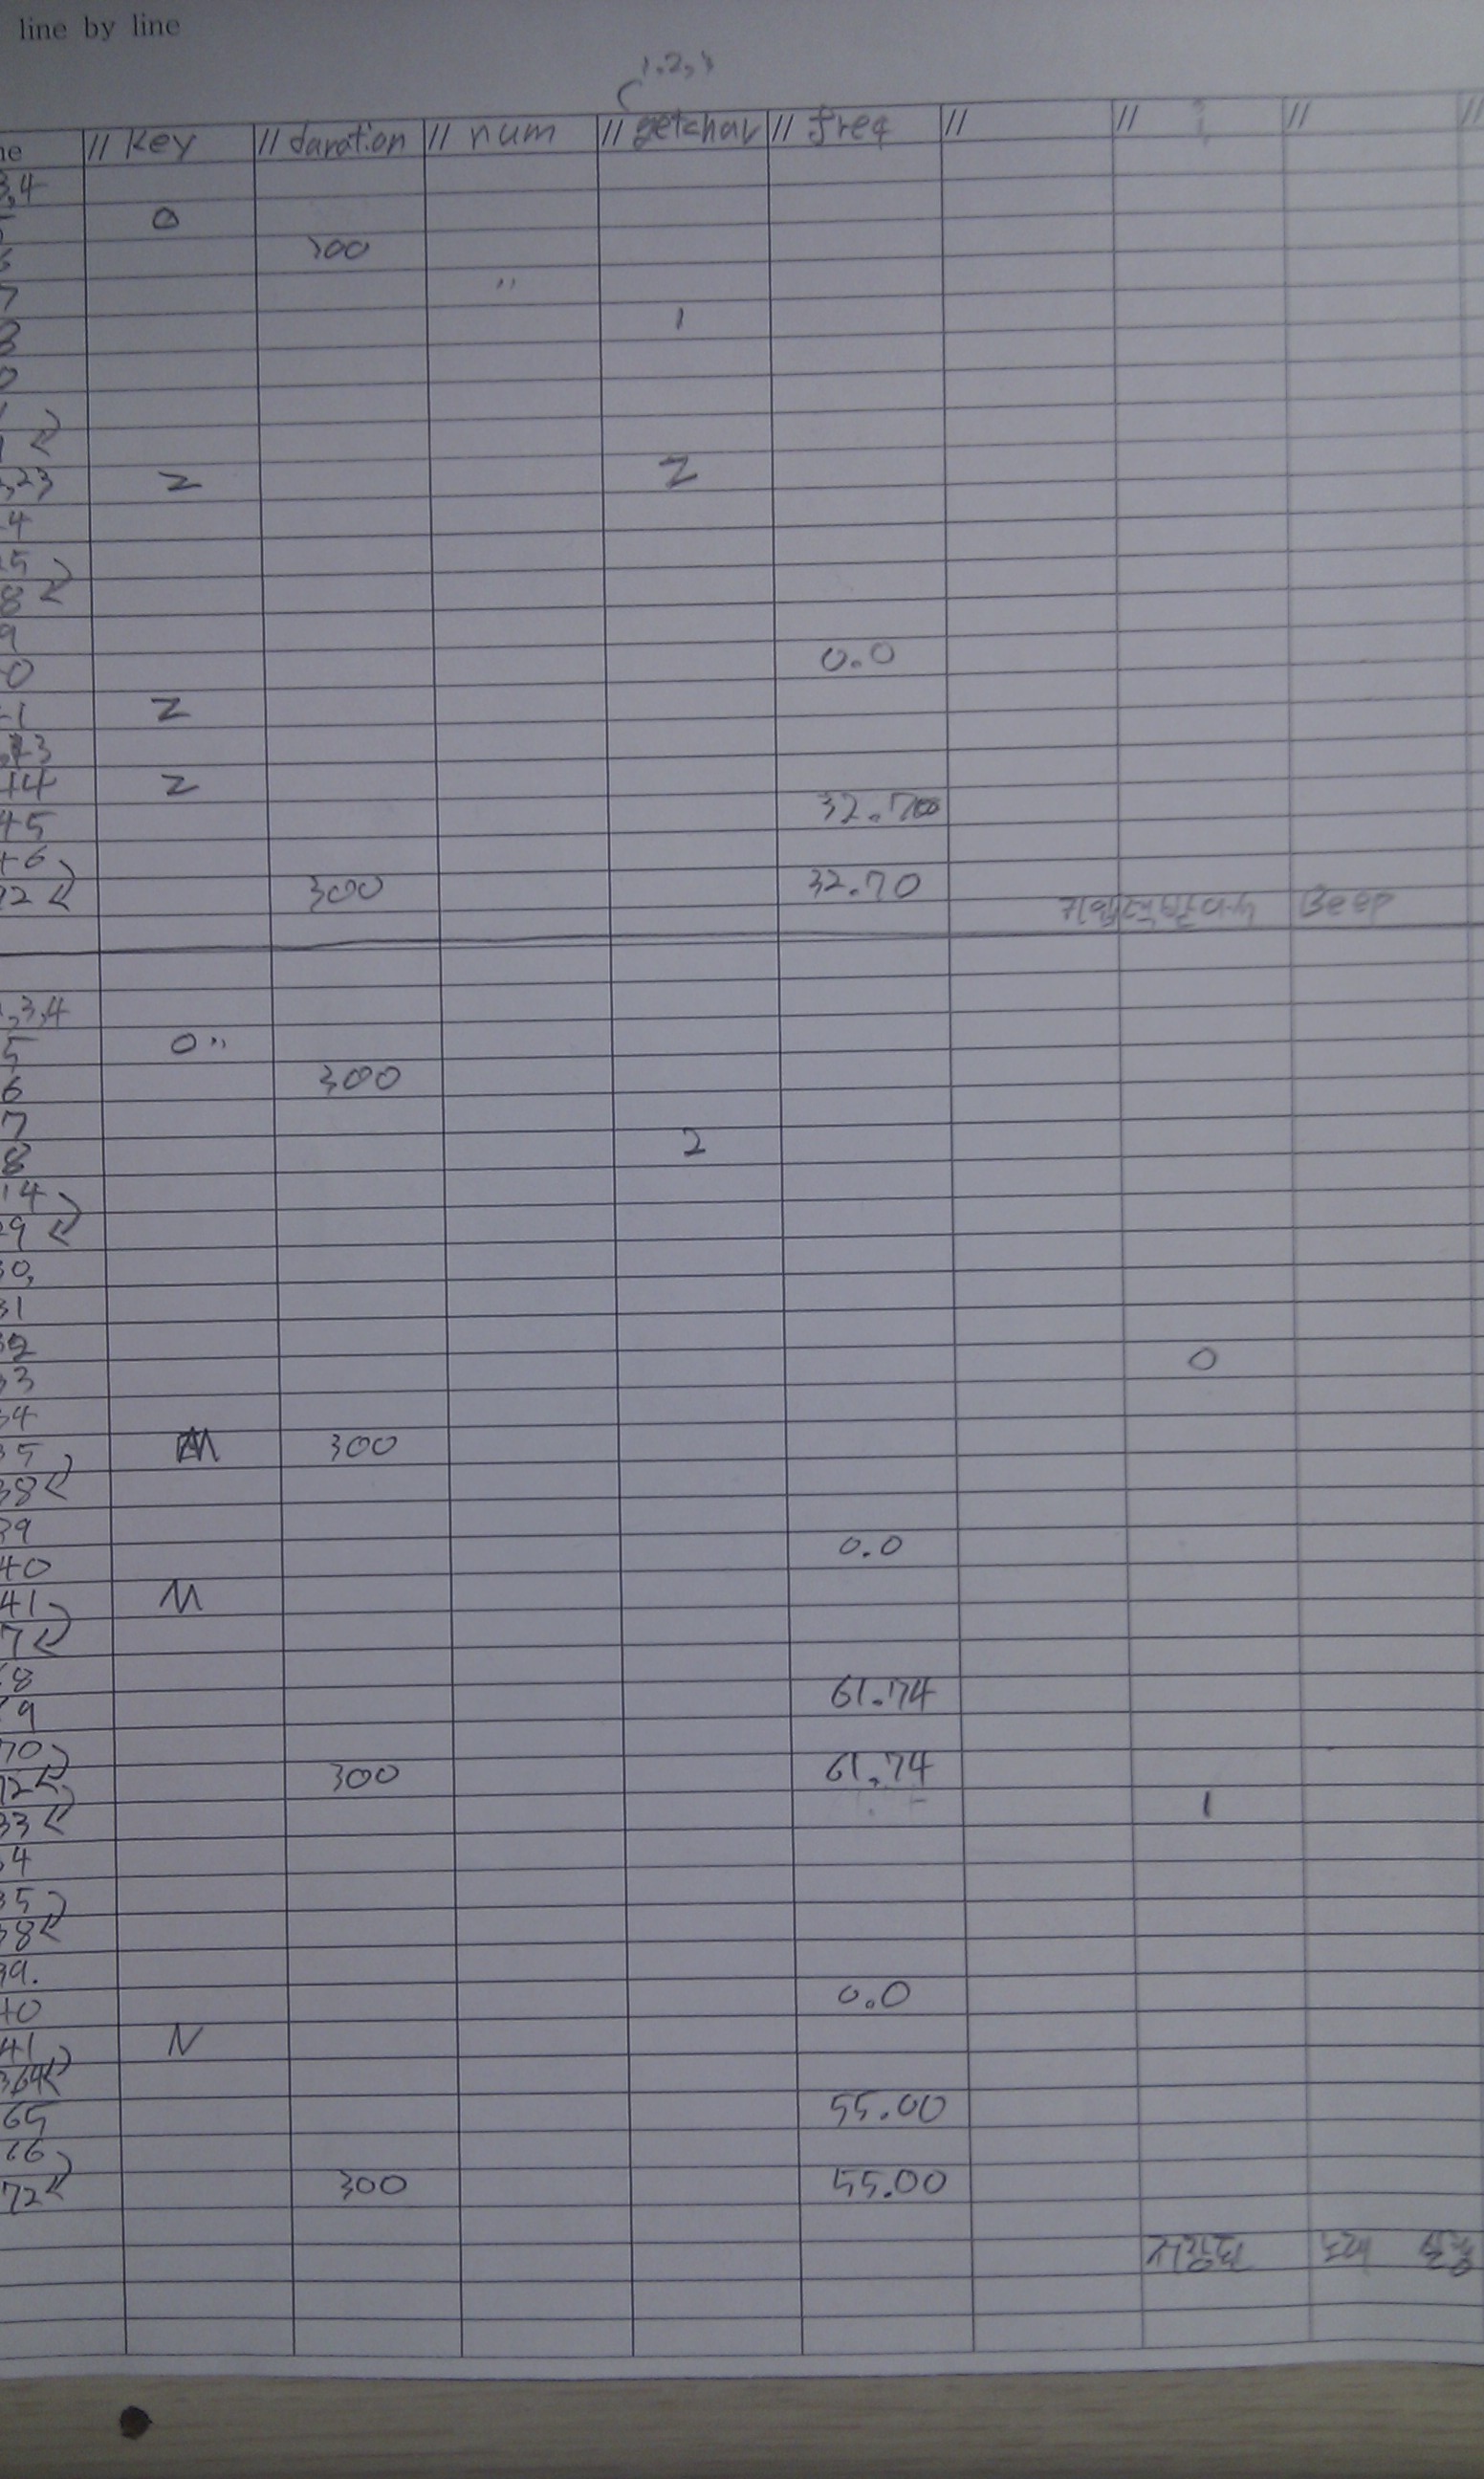 line by line
1,2,3
ne // key // duration // num // getchar // freq // // i // //
3,4
5 0
6 300
7 "
8 1
0
1
23 z z
4
5
8
9
0 0.0
1 z
43
44 z
45 32.70
46
72 300 32.70
Beep
,3,4
5 0 "
6 300
7
8 2
14
29
30,
31
32
33 0
34
35 M 300
38
39
40 0.0
41 M
7
68
69 61.74
70
72 300 61.74
33 1
34
35
38
39.
40 0.0
41 N
64
65 55.00
66
72 300 55.00
저장된 노래